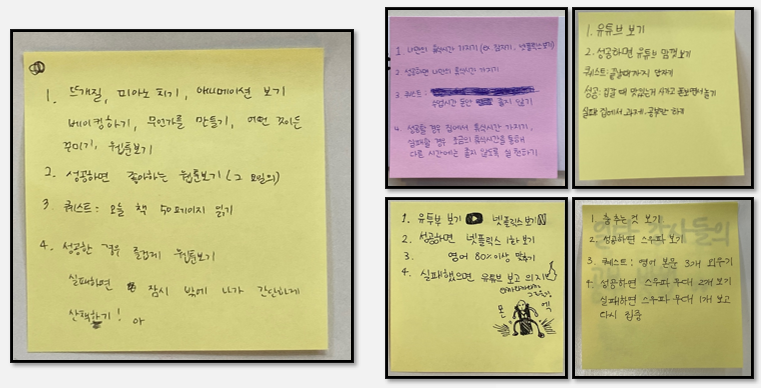 1. 뜨개질, 피아노 치기, 애니메이션 보기
베이킹하기, 무언가를 만들기, 어떤 것이든
꾸미기, 웹툰보기
2. 성공하면 좋아하는 웹툰보기 (그 요일의)
3. 퀘스트: 오늘 책 50페이지 읽기
4. 성공한 경우 즐겁게 웹툰보기
실패하면 잠시 밖에 나가 간단하게
산책하기! 아
1 나만의 휴식시간 가지기 (잠자기, 넷플릭스보기)
2 성공하면 나만의 휴식시간 가지기
3 퀘스트:
수업시간 동안 졸지 않기
4 성공할 경우 집에서 휴식시간 가지기,
실패할 경우 조금의 휴식시간을 통해
다음 시간에는 졸지 않도록 실천하기
1. 유튜브 보기
2. 성공하면 유튜브 맘껏 보기
퀘스트: 끝날때까지 안자기
성공: 집갈 때 맛있는거 사가고 폰보면서 놀기
실패 집에서 과제, 공부만 하기
1. 유튜브 보기 넷플릭스 보기 N
2. 성공하면 넷플릭스 1화 보기
3. 영어 80% 이상 맞추기
4. 실패했으면 유튜브 보고 의지
1. 춤추는것 보기
2. 성공하면 스우파 보기
3. 퀘스트: 영어 본문 3개 외우기
4. 성공하면 스우파 무대 2개 보기
실패하면 스우파 무대 1개 보고
다시 집중